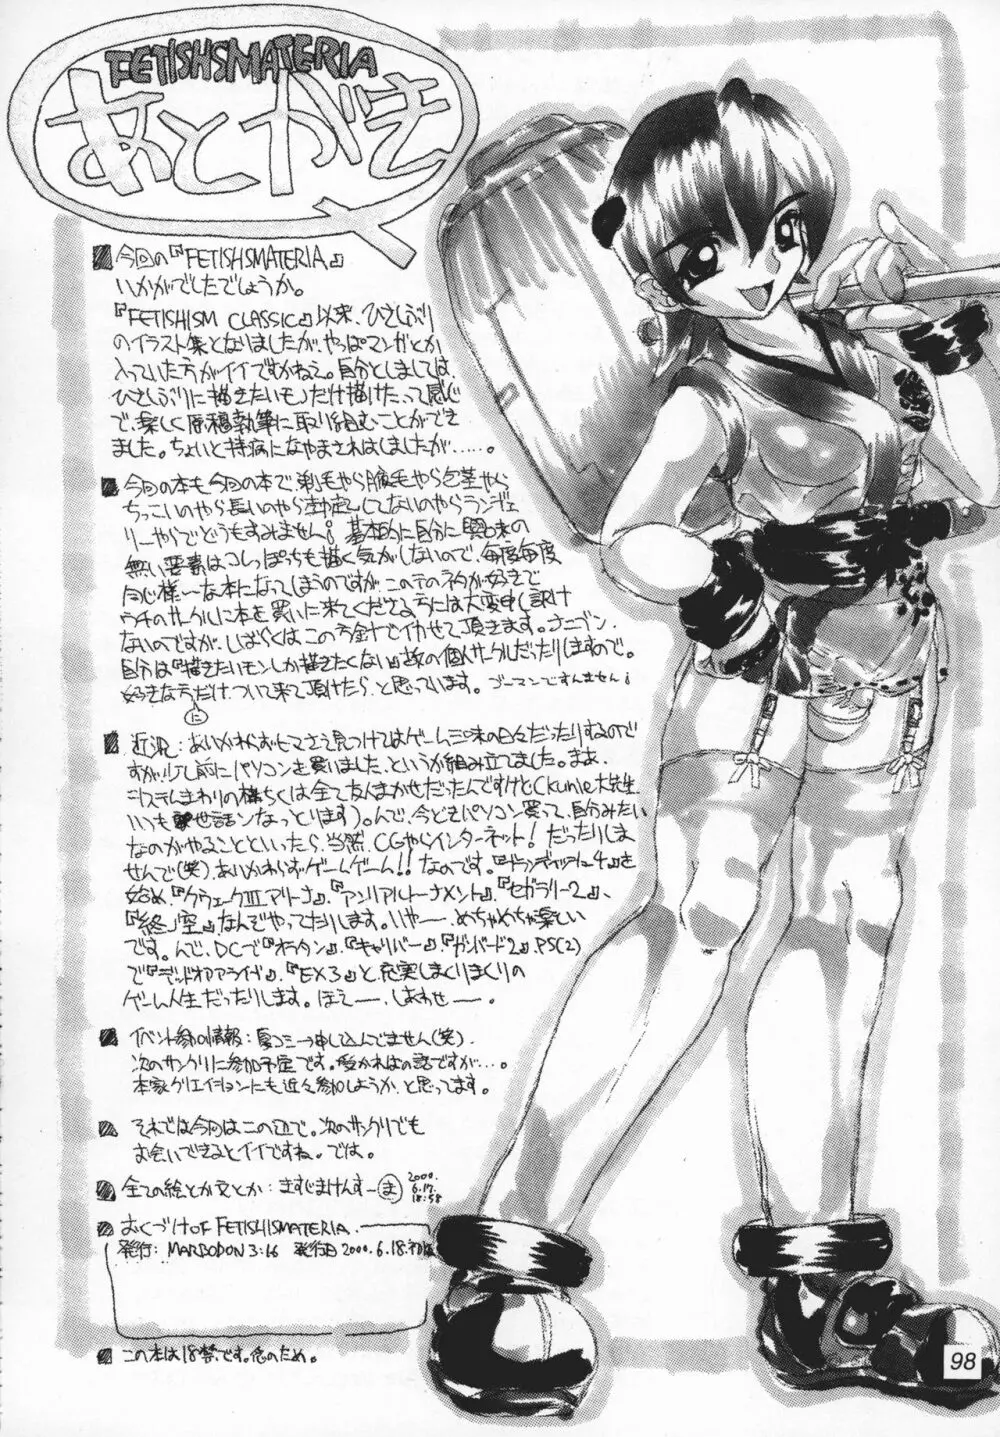 FETISHSMATERIA
あとがき
今回の『FETISHSMATERIA』
いかがでしたでしょうか。
『FETISHISM CLASSIC』以来、ひさしぶり
のイラスト集となりましたが、やっぱマンガとか
入っていた方がイイですかねえ。自分としましては、
ひさしぶりに描きたいモノだけ描けたって感じ
で、楽しく原稿執筆に取り組むことができ
ました。ちょいと持病になやまされはしましたが……。
今回の本も今回の本で、剃毛やら腋毛やら包茎やら
ちっこいのやら長いのやら
してないのやらランジェ
リーやらでどうもすみません! 基本的に自分に興味の
無い要素はコレっぽっちも描く気がしないので、毎度毎度
同じ様〜な本になってしまうのですが、この手のネタが好きで
ウチのサークルに本を買いに来てくださる方には大変申し訳け
ないのですが、しばらくはこの方針でイカせて頂きます。ナニブン、
自分は『描きたいモンしか描きたくない』故の個人サークルだったりしますので。
好きな方だけついて来て頂けたら、と思っています。ゴーマンですんません!
に
近況:あいかわらずヒマさえ見つけてはゲーム三昧の日々だったりするので
すが、少し前にパソコンを買いました、というか組み立てました。まあ、
システムまわりの構ちくは全て友人まかせだったんですけど(Ckunie大先生
いつも世話ンなっとります)。んで、今どきパソコン買って、自分みたい
なのがやることといったら、当然、CGやらインターネット! だったりしま
せんで(笑)、あいかわらずゲームゲーム!! なのです。
を
始め『クウェークⅢアリーナ』、『アンリアルトーナメント』、『セガラリー2』、
『終ノ空』なんぞやってたりします。いやー、めちゃめちゃ楽しい
です。んで、DCで『オラタン』、『キャリバー』、『ガンバード2』、PS(2)
で『デッドオアアライブ』、『EX3』と、充実しまくりまくりの
ゲーム人生だったりします。ほえー、しあわせー。
イベント参加情報:夏コミ→申し込んでません(笑)。
次のサンクリに参加予定です。受かればの話ですが…。
本家クリエイションにも近々参加しようか、と思ってます。
それでは今回はこの辺で。次のサンクリでも
お会いできるとイイですね。では。
全ての絵とか文とか:ますじまけんすー ま 2000.
6.17.
18:58
おくづけ OF FETISHISMATERIA.
発行:MARBODON 3:16 発行日 2000.6.18.初版
この本は18禁です。念のため。
98